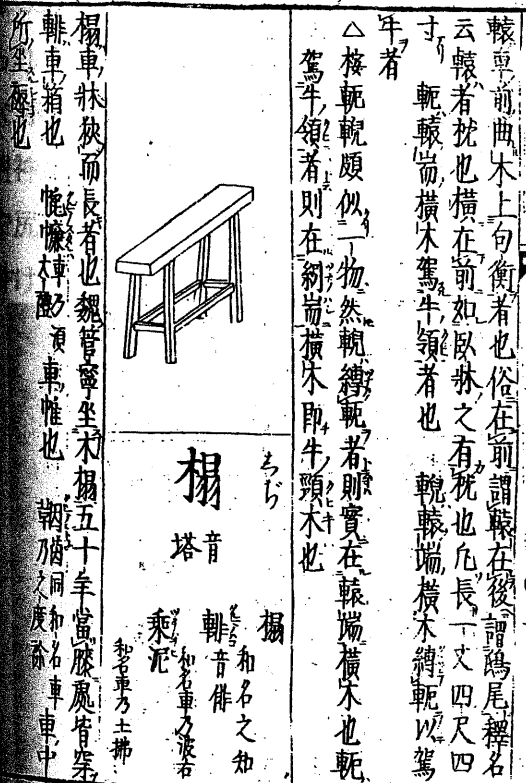 轅車前曲木上句衡者也俗在前謂轅在後謂鴟尾釋名
云轅者枕也橫在前如臥牀之有枕也凡長一丈四尺四
寸 軶轅耑橫木駕牛領者也 輗轅端橫木縛軶以駕
牛者
△桉軶輗頗似一物然輗縛軶者則實在轅端橫木也軶
駕牛領者則在輈耑橫木即牛頸木也
榻
音塔
しぢ
榻 和名之知
輫音俳
和名車乃波古
乘泥
和名車乃土拂
榻車牀狹而長者也魏管寧坐木榻五十年當膝處皆穿
輫車箱也 車乃 車帷也 和名車 車中
所坐 也